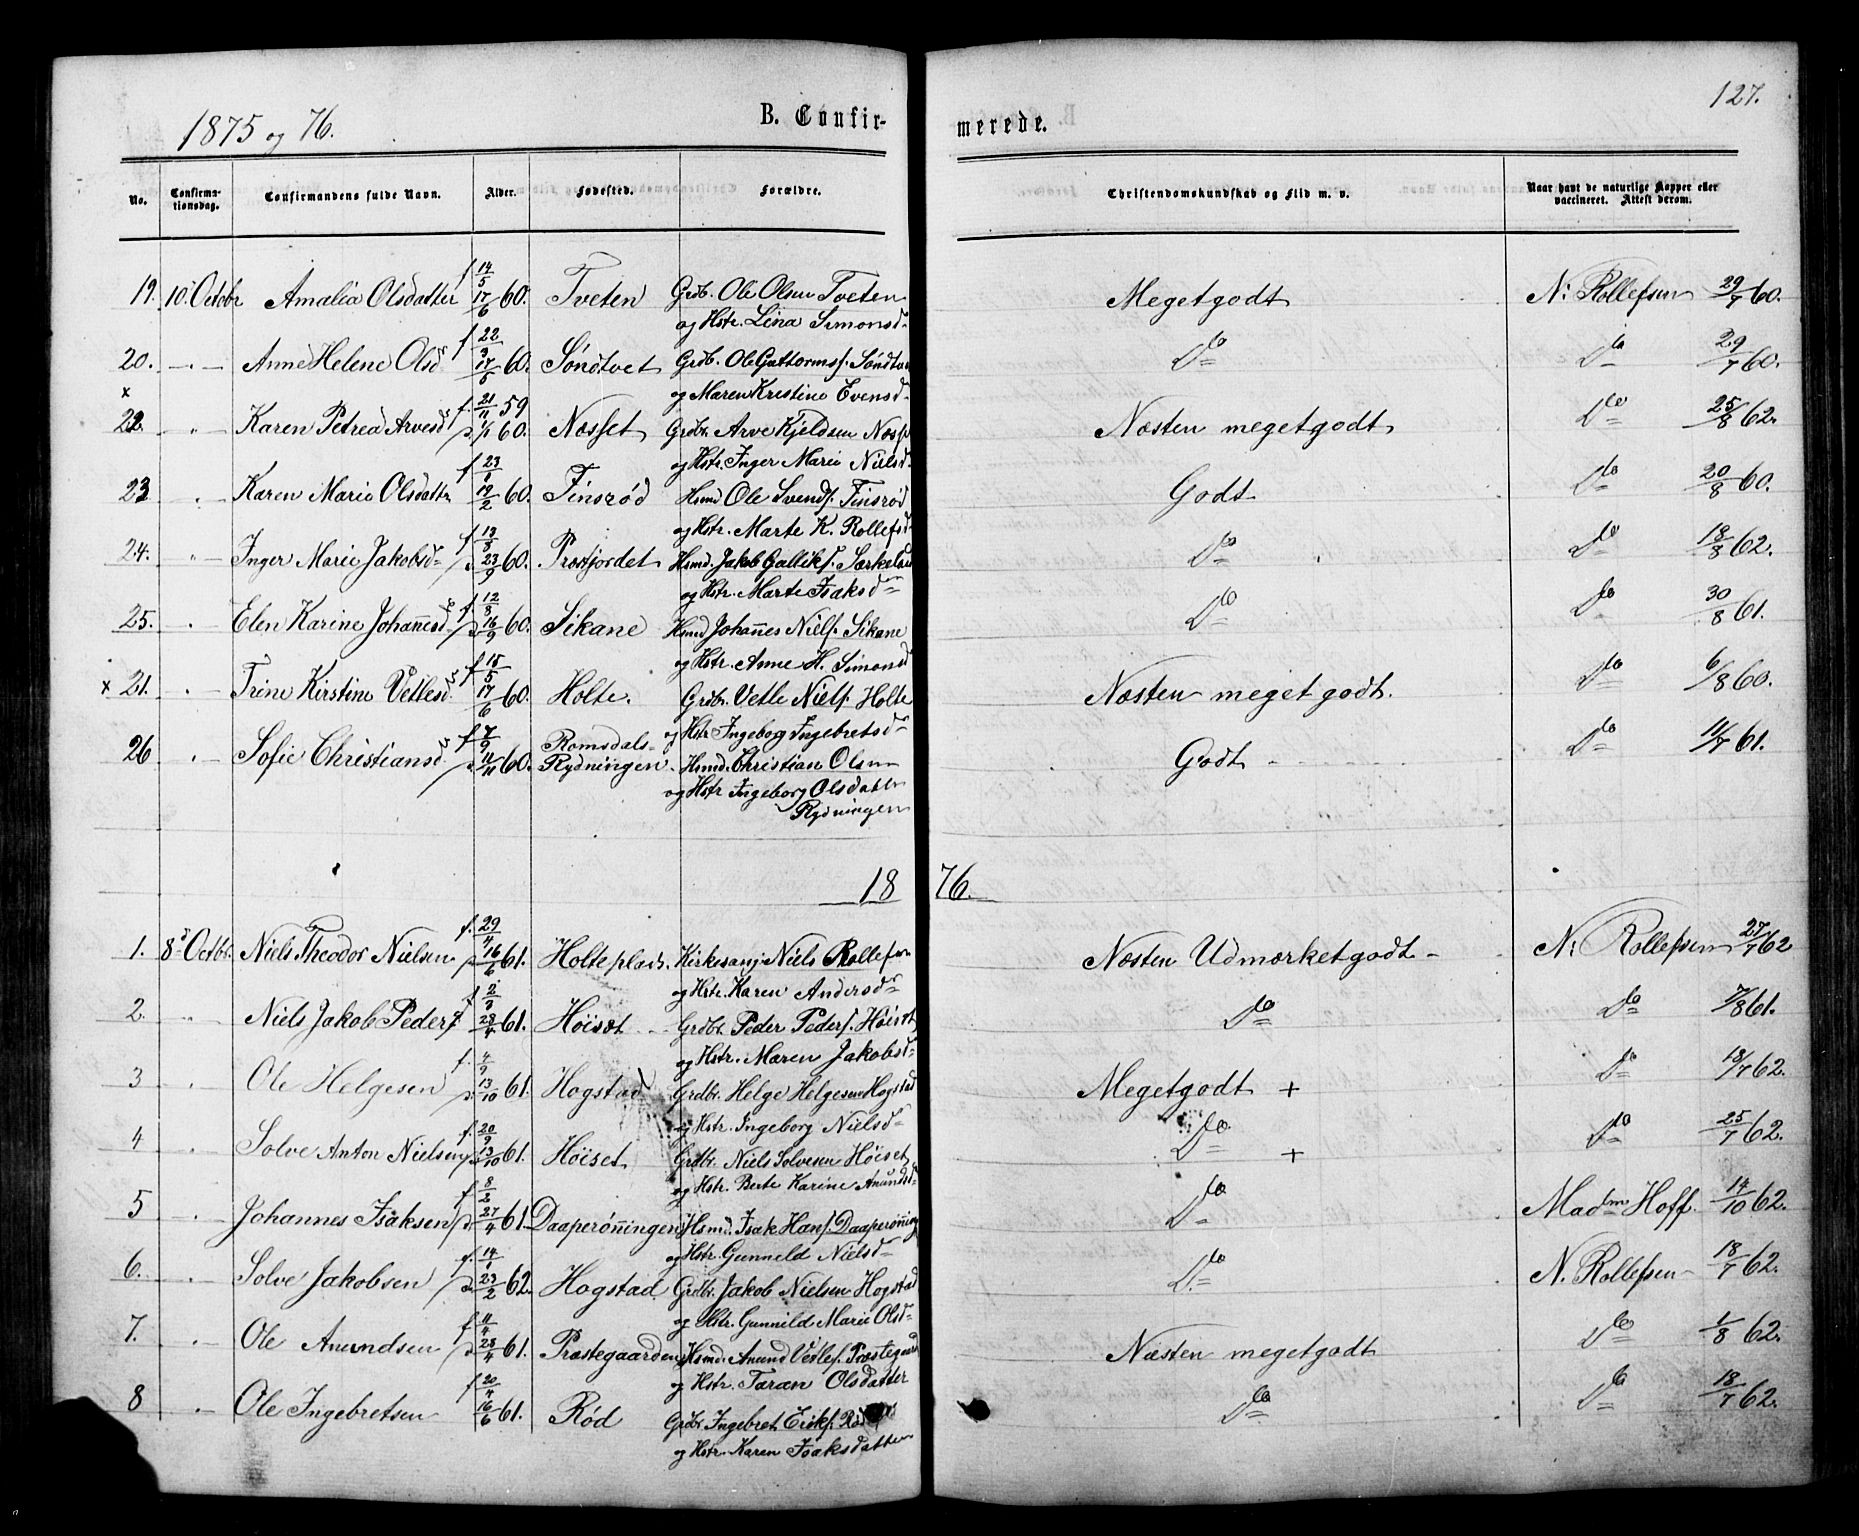 127.
1875 og 76.
B. Confirmerede.
No. Confirmationsdag. Confirmandens fulde Navn. Alder. Fødested. Forældre. Christendomskundskab og Flid m. v. Naar havt de naturlige Kopper eller vaccineret. Attest derom.
19. 10. Octobr Amalia Olsdatter f 14/5 17/6 60. Tveten Grdb. Ole Olsen Tveten Megetgodt N: Rollefsen 29/7 60.
og Hstr. Lina Simonsd
20. " Anne Helene Olsd f 22/3 17/5 60. Søndtvet Grdb. Ole Guttormsf. Søndtvet Do Do 29/7 60.
x og Maren Kristine Evensd
22. " Karen Petrea Arvesd f. 21/11 59 1/1 60. Næsset Grdbr. Arve Kjeldsen Næss Næsten megetgodt Do 25/8 62.
og Hstr. Inger Marie Nielsd
23 " Karen Marie Olsdattr f 23/1 19/2 60. Finsrød Hsmd Ole Svendf. Finsrød Godt Do 20/8 60.
og Hstr. Marte K. Rollefsd
24. " Inger Marie Jakobsd f 13/8 23/9 60. Præstjordet Hsmd. Jakob Gallikf. Særkeland Do Do 18/8 62.
og Hstr. Marte Isaksd
25. " Elen Karine Johannesd f 12/8 16/9 60. Sikane Hsmd Johannes Nielf. Sikane Do Do 30/8 61.
og Hstr. Anne H. Simonsd
x 21. " Trine Kirstine Vetlesd f 15/5 17/6 60. Holte. Grdbr. Vetle Nielf. Holte Næsten meget godt. Do 6/8 60.
og Hstr Ingeborg Ingebretsd
26 " Sofie Christiansd f 7/9 11/11 60. Romsdals-Rydningen Hsmd. Christian Olsen Godt Do 11/7 61.
og Hstr Ingeborg Olsdattr
Rydningen
1876.
1. 8d Octbr. Niels Theodor Nielsen f. 29/4 16/6 61. Holteplads. Kirkesanj. Niels Rollefsen Næsten Udmærketgodt N: Rollefsen 27/7 62
og Hstr. Karen Andersd
2. " Niels Jakob Pedersf f 2/3 28/4 61. Höiset Grdbr. Peder Pedersf. Höiset Do Do 7/8 61.
og Hstr. Maren Jakobsd
3 " Ole Helgesen f. 4/9 13/10 61. Hogstad Grdbr. Helge Helgesen Hogstad Megetgodt + Do 18/7 62.
og Hstr. Ingeborg Nielsd
4 " Solve Anton Nielsen f. 20/9 13/10 61. Höiset Grdbr. Niels Solvesen Höiset Do + Do 25/7 62.
og Hstr. Berte Karine Anundsd
5 " Johannes Isaksen f 8/2 27/4 61. Daaperønningen Hsmd. Isak Hansf. Daaperønning Do Madm Hoff. 14/10 62.
og Hstr. Gunneld Nielsd
6. " Solve Jakobsen f. 14/1 23/2 62. Hogstad Grdbr. Jakob Nielsen Hogstad Do N. Rollefsen 18/7 62.
og Hstr. Gunnild Marie Olsd
7. " Ole Anundsen f 11/4 28/4 61. Præstegaarden Hsmd. Anund Vetlef. Præstegaard Næsten megetgodt Do 1/8 62.
og Hstr. Taran Olsdatter
8 " Ole Ingebretsen f 20/4 16/6 61. Rød Grdbr Ingebret Eirikf. Rød Do Do 18/7 62.
og Hstr. Karen Isaksdatter